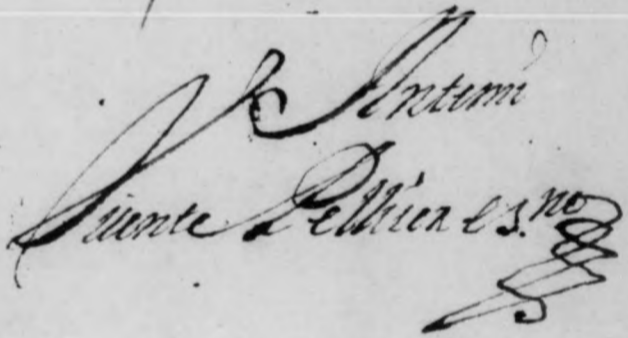 Antemi
Visente Pellicer es.no